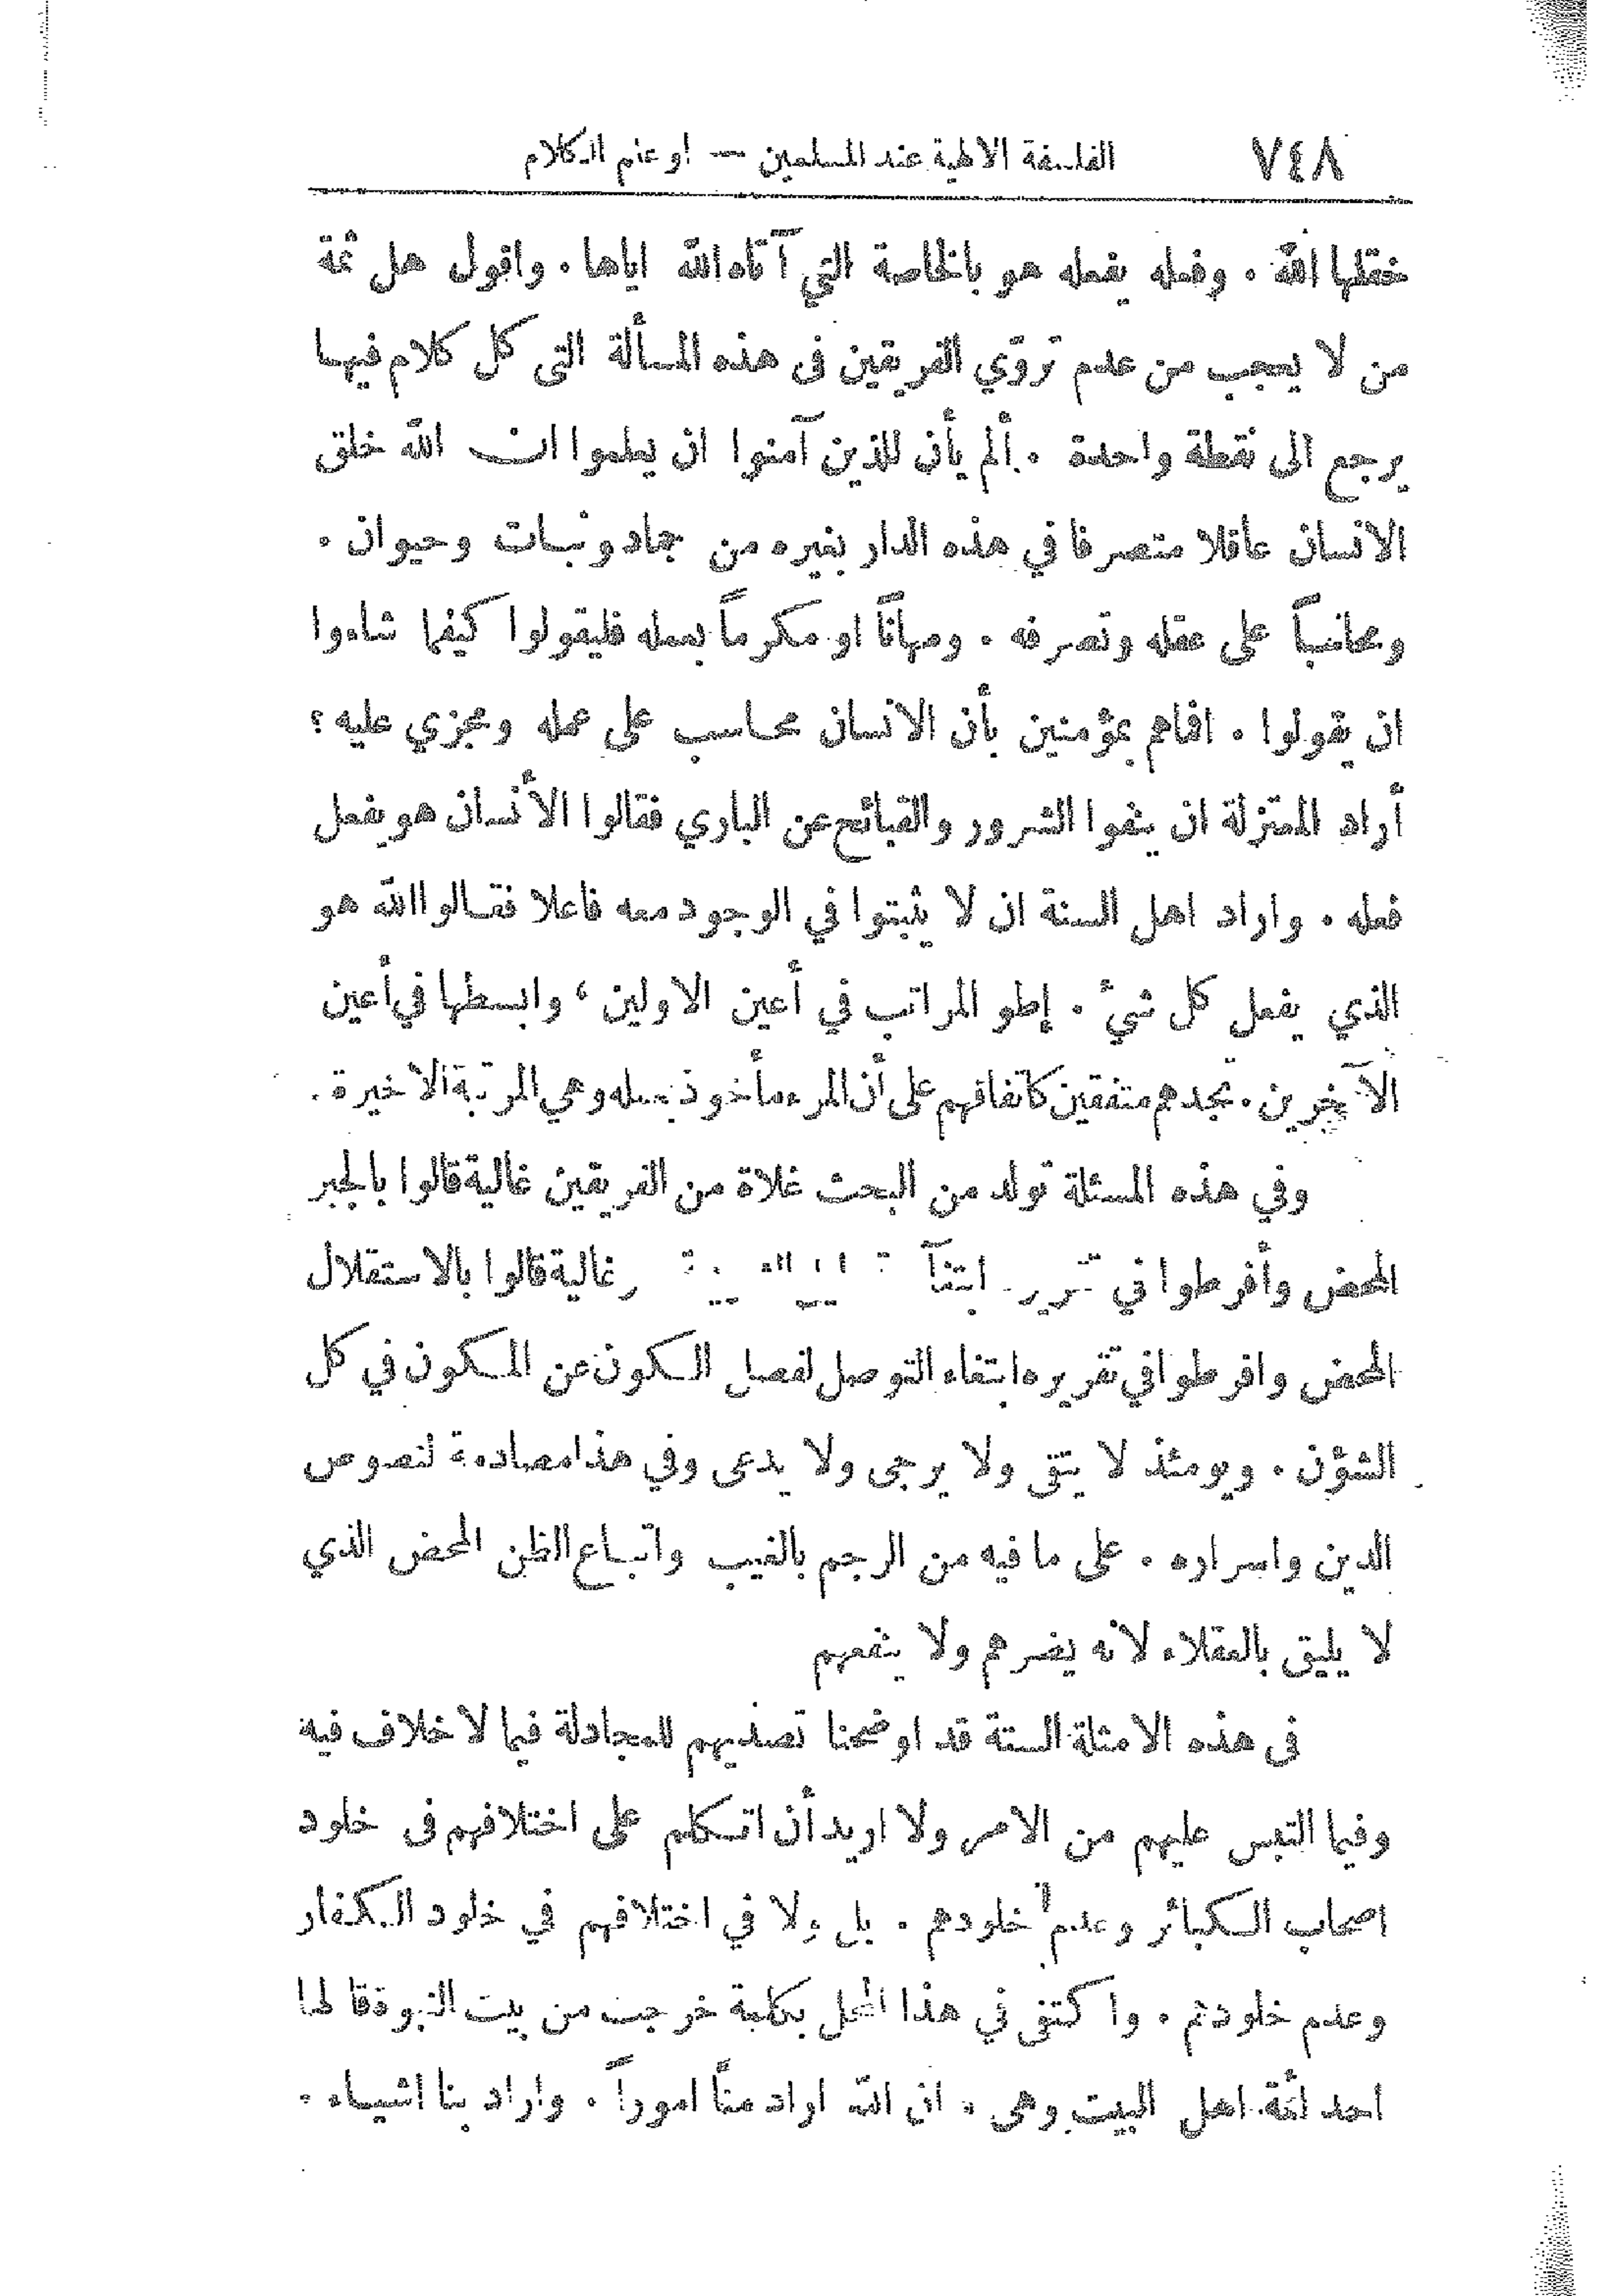 ٧٤٨ الفلسفة الالهية عند المسلمين — او علم الكلام
خلقها الله . وفعله يفعله هو بالخاصة التي آتاه الله اياها . واقول هل ثمة
من لا يعجب من عدم تروّي الفريقين فى هذه المسألة التى كل كلام فيها
يرجع الى نقطة واحدة . ألم يأن للذين آمنوا ان يعلموا ان الله خلق
الانسان عاقلا متصرفا في هذه الدار بغيره من جماد ونبات وحيوان .
ومحاسباً على عقله وتصرفه . ومهاناً او مكرماً بعمله فليقولوا كيفما شاءوا
ان يقولوا . افماهم بمؤمنين بأن الانسان محاسب على عمله ومجزي عليه ؟
أراد المعتزلة ان ينفوا الشرور والقبائح عن الباري فقالوا الأنسان هو يفعل
فعله . واراد اهل السنة ان لا يثبتوا في الوجود معه فاعلا فقالوا الله هو
الذي يفعل كل شيء . إطو المراتب في أعين الاولين ، وابسطها في أعين
الآخرين . تجدهم متفقين كاتفاقهم على أن المرء مأخوذ بعمله وهي المرتبة الاخيرة .
وفي هذه المسئلة تولد من البحث غلاة من الفريقين غالية قالوا بالجبر
المحض وأفرطوا في وغالية قالوا بالاستقلال
المحض وافرطوا في تقريره ابتغاء التوصل لفصل الكون عن المكون في كل
الشؤن . ويومئذ لا يتقى ولا يرجى ولا يدعى وفي هذا مصادمة لنصوص
الدين واسراره . على ما فيه من الرجم بالغيب واتباع الظن المحض الذي
لا يليق بالعقلاء لانه يضرهم ولا ينفعهم
فى هذه الامثلة الستة قد اوضحنا تصديهم للمجادلة فيما لا خلاف فيه
وفيما التبس عليهم من الامر ولا اريد أن اتكلم على اختلافهم فى خلود
اصحاب الكبائر وعدم خلودهم . بل ولا في اختلافهم في خلود الكفار
وعدم خلودهم . واكتفى في هذا المحل بكلمة خرجت من بيت النبوة قالها
احد ائمة اهل البيت وهى . ان الله اراد منّا اموراً . واراد بنا اشياء .